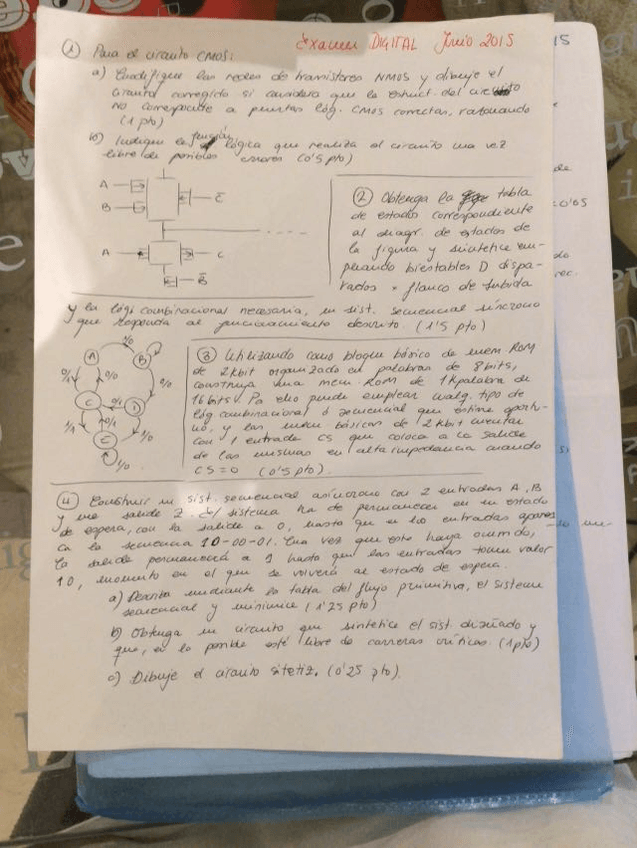 Examen DIGITAL Junio 2015
① Para el circuito CMOS:
a) Modifique las redes de transistores NMOS y dibuje el
circuito corregido si considera que la estruct. del circuito
no corresponde a puertas lóg. CMOS correctas, razonando
(1 pto)
b) Indique la función lógica que realiza el circuito una vez
libre de posibles errores (0'5 pto)
A
B
C̅
A
C
B̅
② Obtenga la tabla
de estados correspondiente
al diagr. de estados de
la figura y sintetice em-
pleando biestables D dispa-
rados x flanco de subida
y la lógi combinacional necesaria, un sist. secuencial síncrono
que responda al funcionamiento descrito. (1'5 pto)
A
B
C
D
E
1/0
0/1
0/0
0/0
0/1
1/0
1/1
0/1
1/0
③ Utilizando como bloque básico de mem ROM
de 2kbit organizado en palabras de 8bits,
construya una mem. ROM de 1kpalabra de
16bits. Pa ello puede emplear cualq. tipo de
lóg combinacional ó secuencial que estime oportu-
no, y las mem básicas de 2kbit cuentan
con 1 entrada CS que coloca a la salida
de las mismas en alta impedancia cuando
CS=0 (0'5 pto).
④ Construir un sist. secuencial asíncrono con 2 entradas A, B
y una salida Z. del sistema ha de permanecer en un estado
de espera, con la salida a 0, hasta que en las entradas aparez-
ca la secuencia 10-00-01. Una vez que esto haya ocurrido,
la salida permanecerá a 1 hasta que las entradas tomen valor
10, momento en el que se volverá al estado de espera.
a) Describa mediante la tabla del flujo primitiva, el sistema
secuencial y minimice (1'25 pto)
b) Obtenga un circuito que sintetice el sist. diseñado y
que, en lo posible esté libre de carreras críticas. (1pto)
c) Dibuje el circuito sitetiz. (0'25 pto).
15
de
=0'05
do
rec.
si